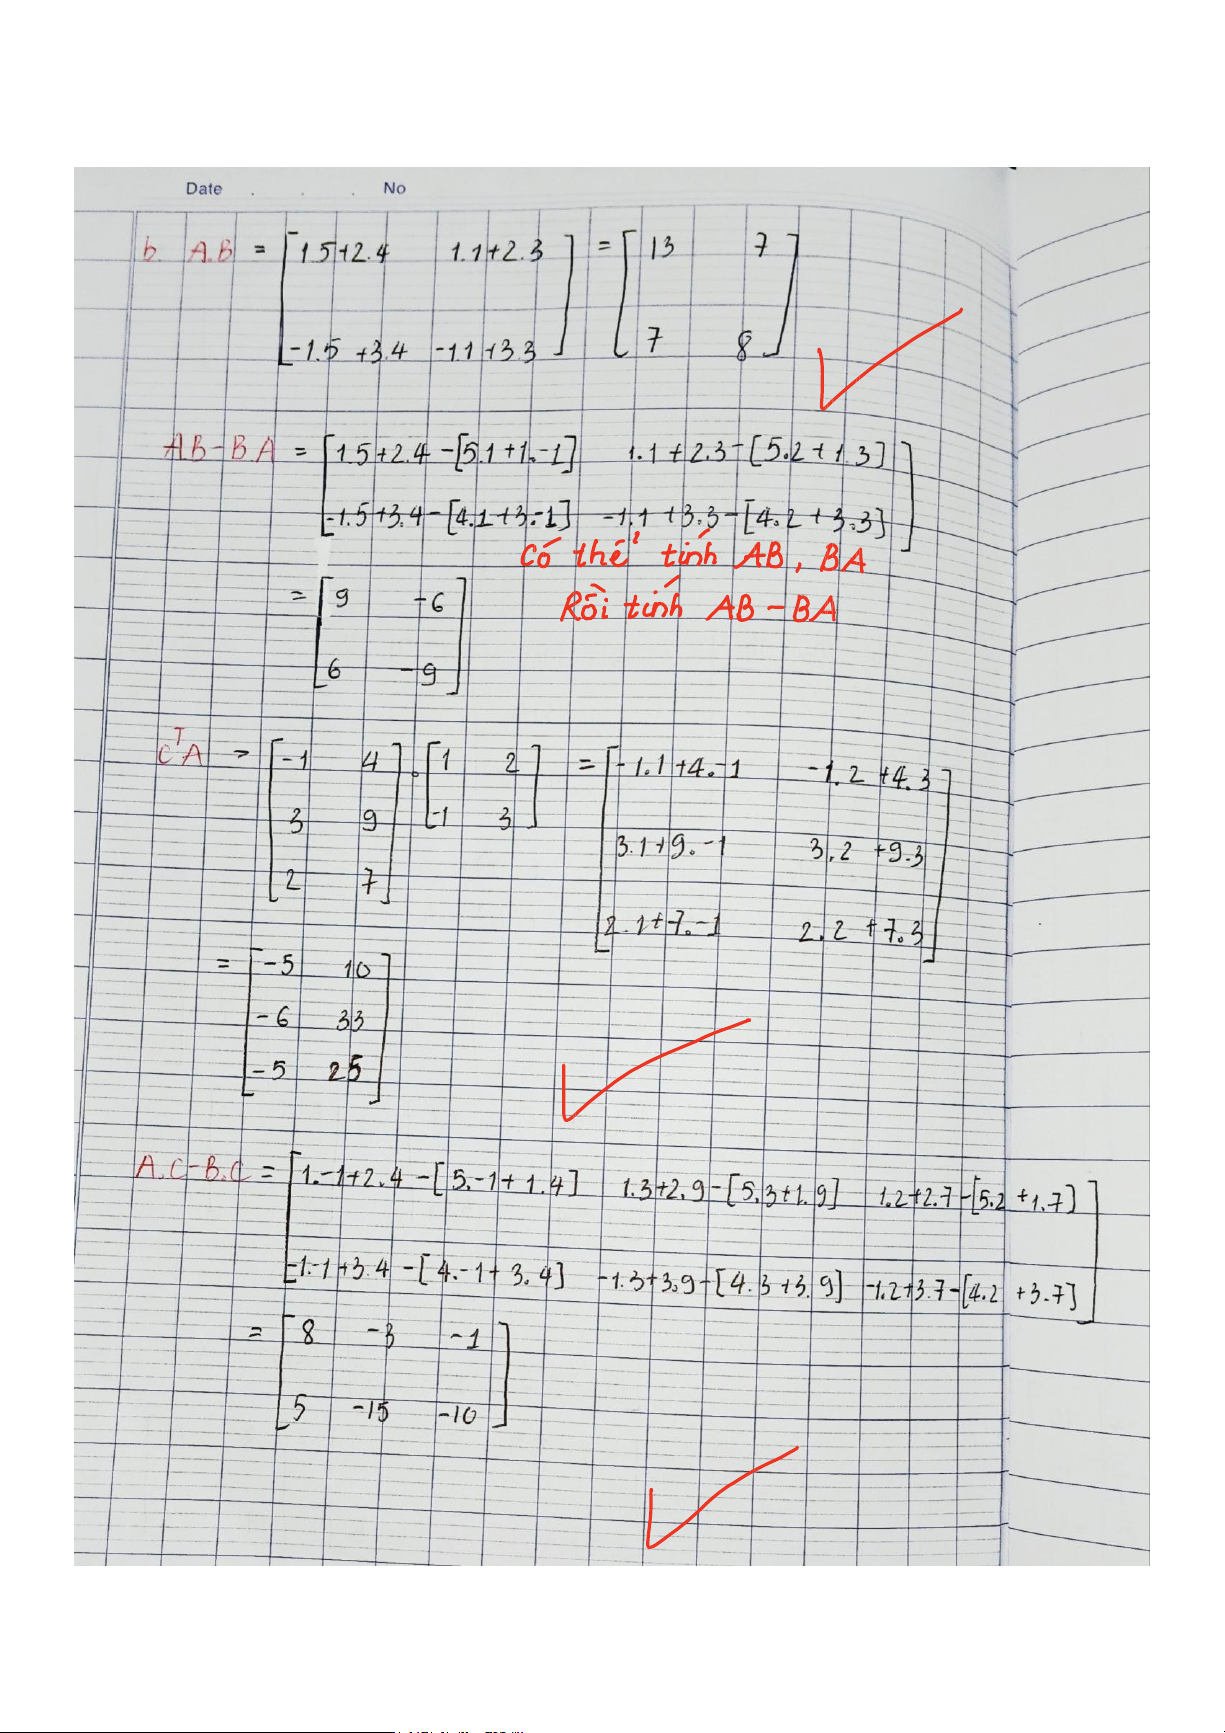 Date . . . No
b. A.B = [ 1.5+2.4 1.1+2.3 ] = [ 13 7 ]
[ -1.5 +3.4 -1.1 +3.3 ] [ 7 8 ]
AB-BA = [ 1.5+2.4-[5.1+1.-1] 1.1+2.3-[5.2+1.3] ]
[ -1.5+3.4-[4.1+3.-1] -1.1+3.3-[4.2+3.3] ]
Có thể tính AB, BA
Rồi tính AB - BA
= [ 9 -6 ]
[ 6 -9 ]
CᵀA = [ -1 4 ] . [ 1 2 ] = [ -1.1+4.-1 -1.2+4.3 ]
[ 3 9 ] [ -1 3 ] [ 3.1+9.-1 3.2+9.3 ]
[ 2 7 ] [ 2.1+7.-1 2.2+7.3 ]
= [ -5 10 ]
[ -6 33 ]
[ -5 25 ]
A.C-B.C = [ 1.-1+2.4-[5.-1+1.4] 1.3+2.9-[5.3+1.9] 1.2+2.7-[5.2+1.7] ]
[ -1.-1+3.4-[4.-1+3.4] -1.3+3.9-[4.3+3.9] -1.2+3.7-[4.2+3.7] ]
= [ 8 -3 -1 ]
[ 5 -15 -10 ]